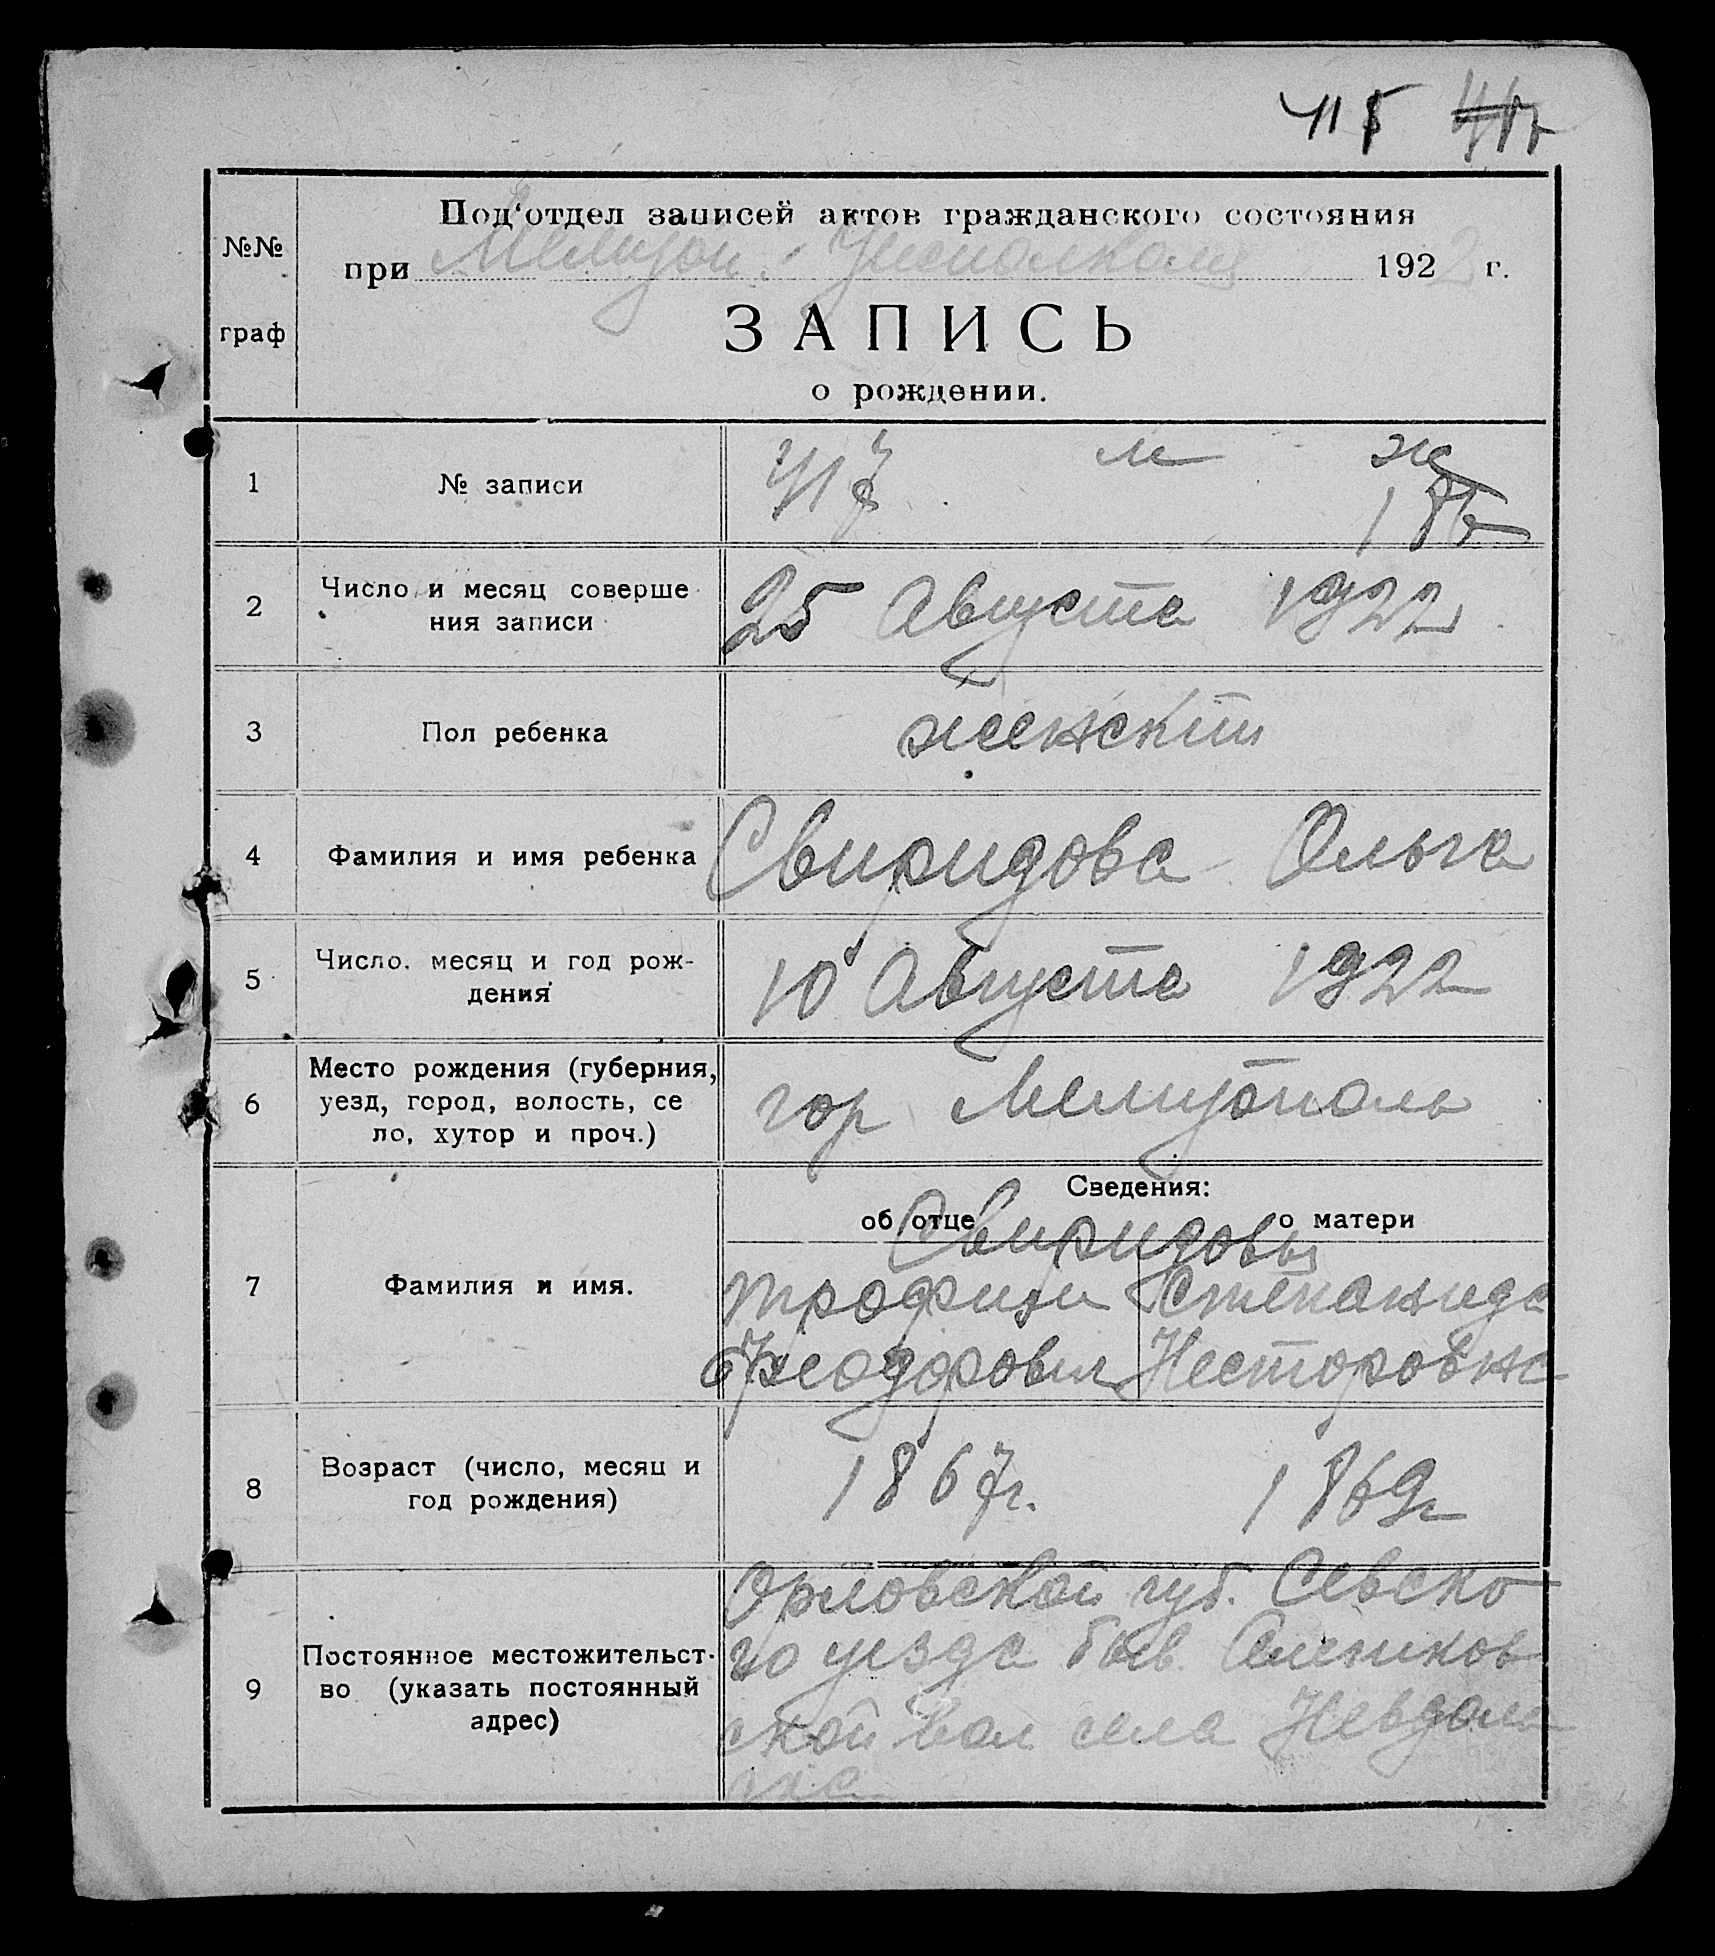 415
Под'отдел записей актов гражданского состояния
№№ при Мелитоп. Уисполкоме 1922 г.
граф
ЗАПИСЬ
о рождении.
1 № записи 417 м ж
186
2 Число и месяц соверше
ния записи 25 Августа 1922
3 Пол ребенка женский
4 Фамилия и имя ребенка Свиридова Ольга
5 Число. месяц и год рож-
дения 10 Августа 1922
6 Место рождения (губерния,
уезд, город, волость, се
ло, хутор и проч.) гор Мелитополь
Сведения:
об отце о матери
Свиридовы
7 Фамилия и имя. Трофим Степанида
Феодорович Несторовна
8 Возраст (число, месяц и
год рождения) 1867г. 1869г
9 Постоянное местожительст-
во (указать постоянный
адрес)
Орловской губ. Севско
го уезда
ской вол села